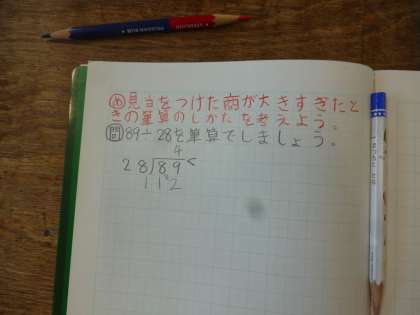 め 見当をつけた商が大きすぎたと
きの筆算のしかたを考えよう。
問 89÷28を筆算でしましょう。
4
28)89<
112